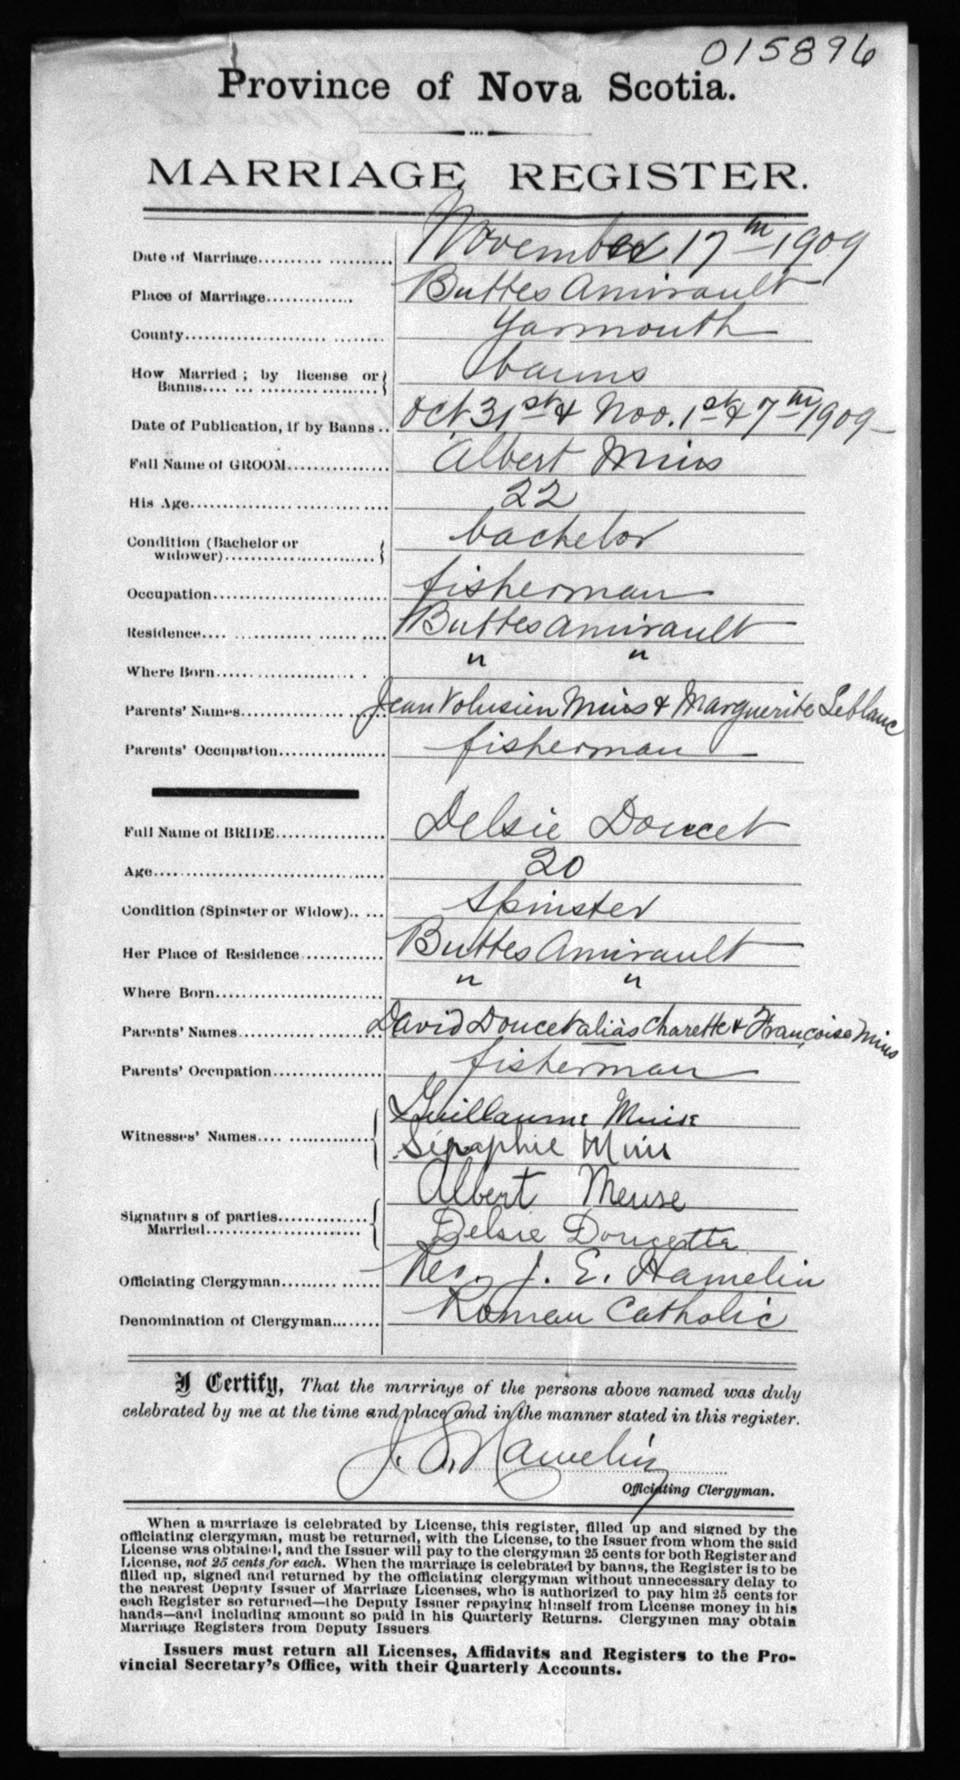 015896
Province of Nova Scotia.
MARRIAGE REGISTER.
Date of Marriage November 17th 1909
Place of Marriage Buttes Amirault
County Yarmouth
How Married; by license or Banns banns
Date of Publication, if by Banns Oct 31st & Nov. 1st & 7th 1909
Full Name of GROOM Albert Mius
His Age 22
Condition (Bachelor or widower) bachelor
Occupation fisherman
Residence Buttes Amirault
Where Born " "
Parents' Names Jean Volusien Mius & Marguerite Leblanc
Parents' Occupation fisherman
Full Name of BRIDE Delsie Doucet
Age 20
Condition (Spinster or Widow) Spinster
Her Place of Residence Buttes Amirault
Where Born " "
Parents' Names David Doucet alias Charette & Françoise Mius
Parents' Occupation fisherman
Witnesses' Names Guillaume Muise
Séraphie Mius
Signatures of parties Married Albert Meuse
Delsie Doucette
Officiating Clergyman Rev. J. E. Hamelin
Denomination of Clergyman Roman Catholic
I Certify, That the marriage of the persons above named was duly
celebrated by me at the time and place and in the manner stated in this register.
J. E. Hamelin
Officiating Clergyman.
When a marriage is celebrated by License, this register, filled up and signed by the
officiating clergyman, must be returned, with the License, to the Issuer from whom the said
License was obtained, and the Issuer will pay to the clergyman 25 cents for both Register and
License, not 25 cents for each. When the marriage is celebrated by banns, the Register is to be
filled up, signed and returned by the officiating clergyman without unnecessary delay to
the nearest Deputy Issuer of Marriage Licenses, who is authorized to pay him 25 cents for
each Register so returned—the Deputy Issuer repaying himself from License money in his
hands—and including amount so paid in his Quarterly Returns. Clergymen may obtain
Marriage Registers from Deputy Issuers
Issuers must return all Licenses, Affidavits and Registers to the Pro-
vincial Secretary's Office, with their Quarterly Accounts.